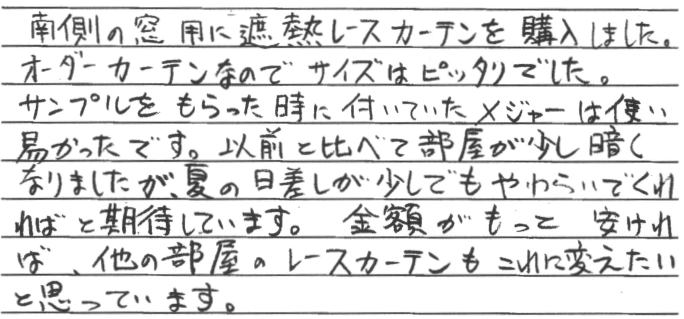 南側の窓用に遮熱レースカーテンを購入しました。
オーダーカーテンなのでサイズはピッタリでした。
サンプルをもらった時に付いていたメジャーは使い
易かったです。以前と比べて部屋が少し暗く
なりましたが、夏の日差しが少しでもやわらいでくれ
ればと期待しています。 金額がもっと安けれ
ば、他の部屋のレースカーテンもこれに変えたい
と思っています。